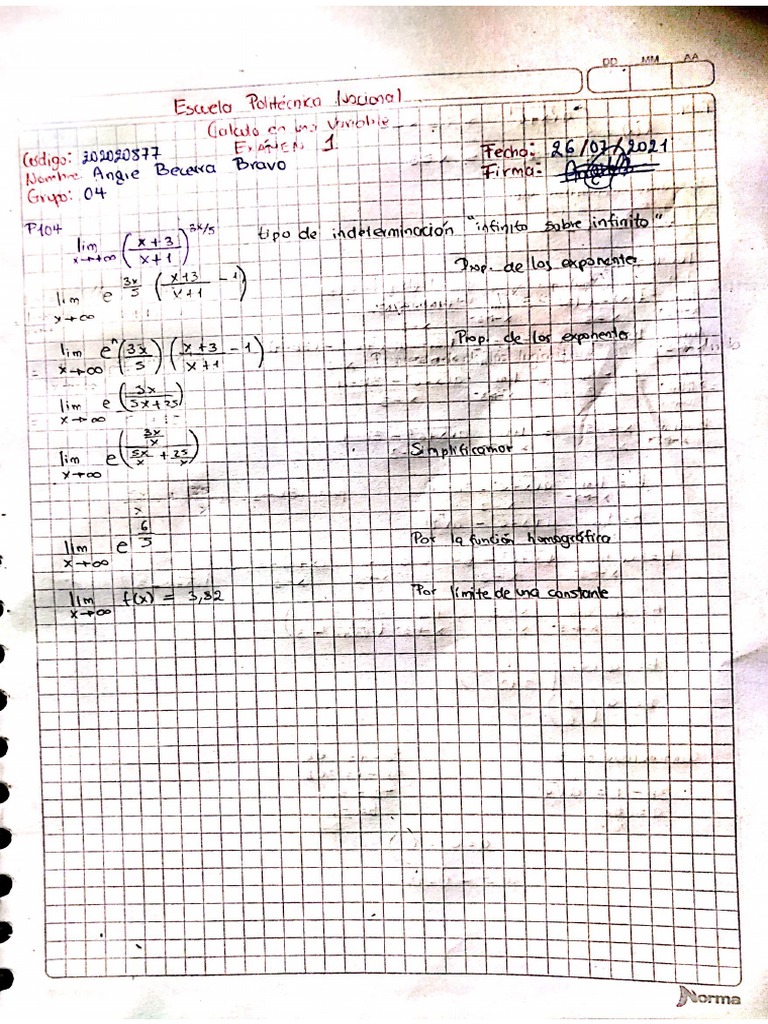 DD MM AA
Escuela Politécnica Nacional
Calculo en una Variable
EXAMEN 1
Código: 202020877
Fecha: 26/07/2021
Nombre: Angie Becerra Bravo
Firma:
Grupo: 04
P104
lim x→∞ (x+3 / x+1)^3x/5 tipo de indeterminación "infinito sobre infinito".
lim x→∞ e^3x/5 (x+3 / x+1 - 1) Prop. de los exponentes
= lim x→∞ e^(3x/5) (x+3 / x+1 - 1) Prop. de los exponentes
lim x→∞ e(3x / 5x+25)
lim x→∞ e(3x/x / 5x/x + 25/x) Simplificamos
lim x→∞ e^6/5 Por la función homográfica
lim x→∞ f(x) = 3,32 Por límite de una constante
Norma